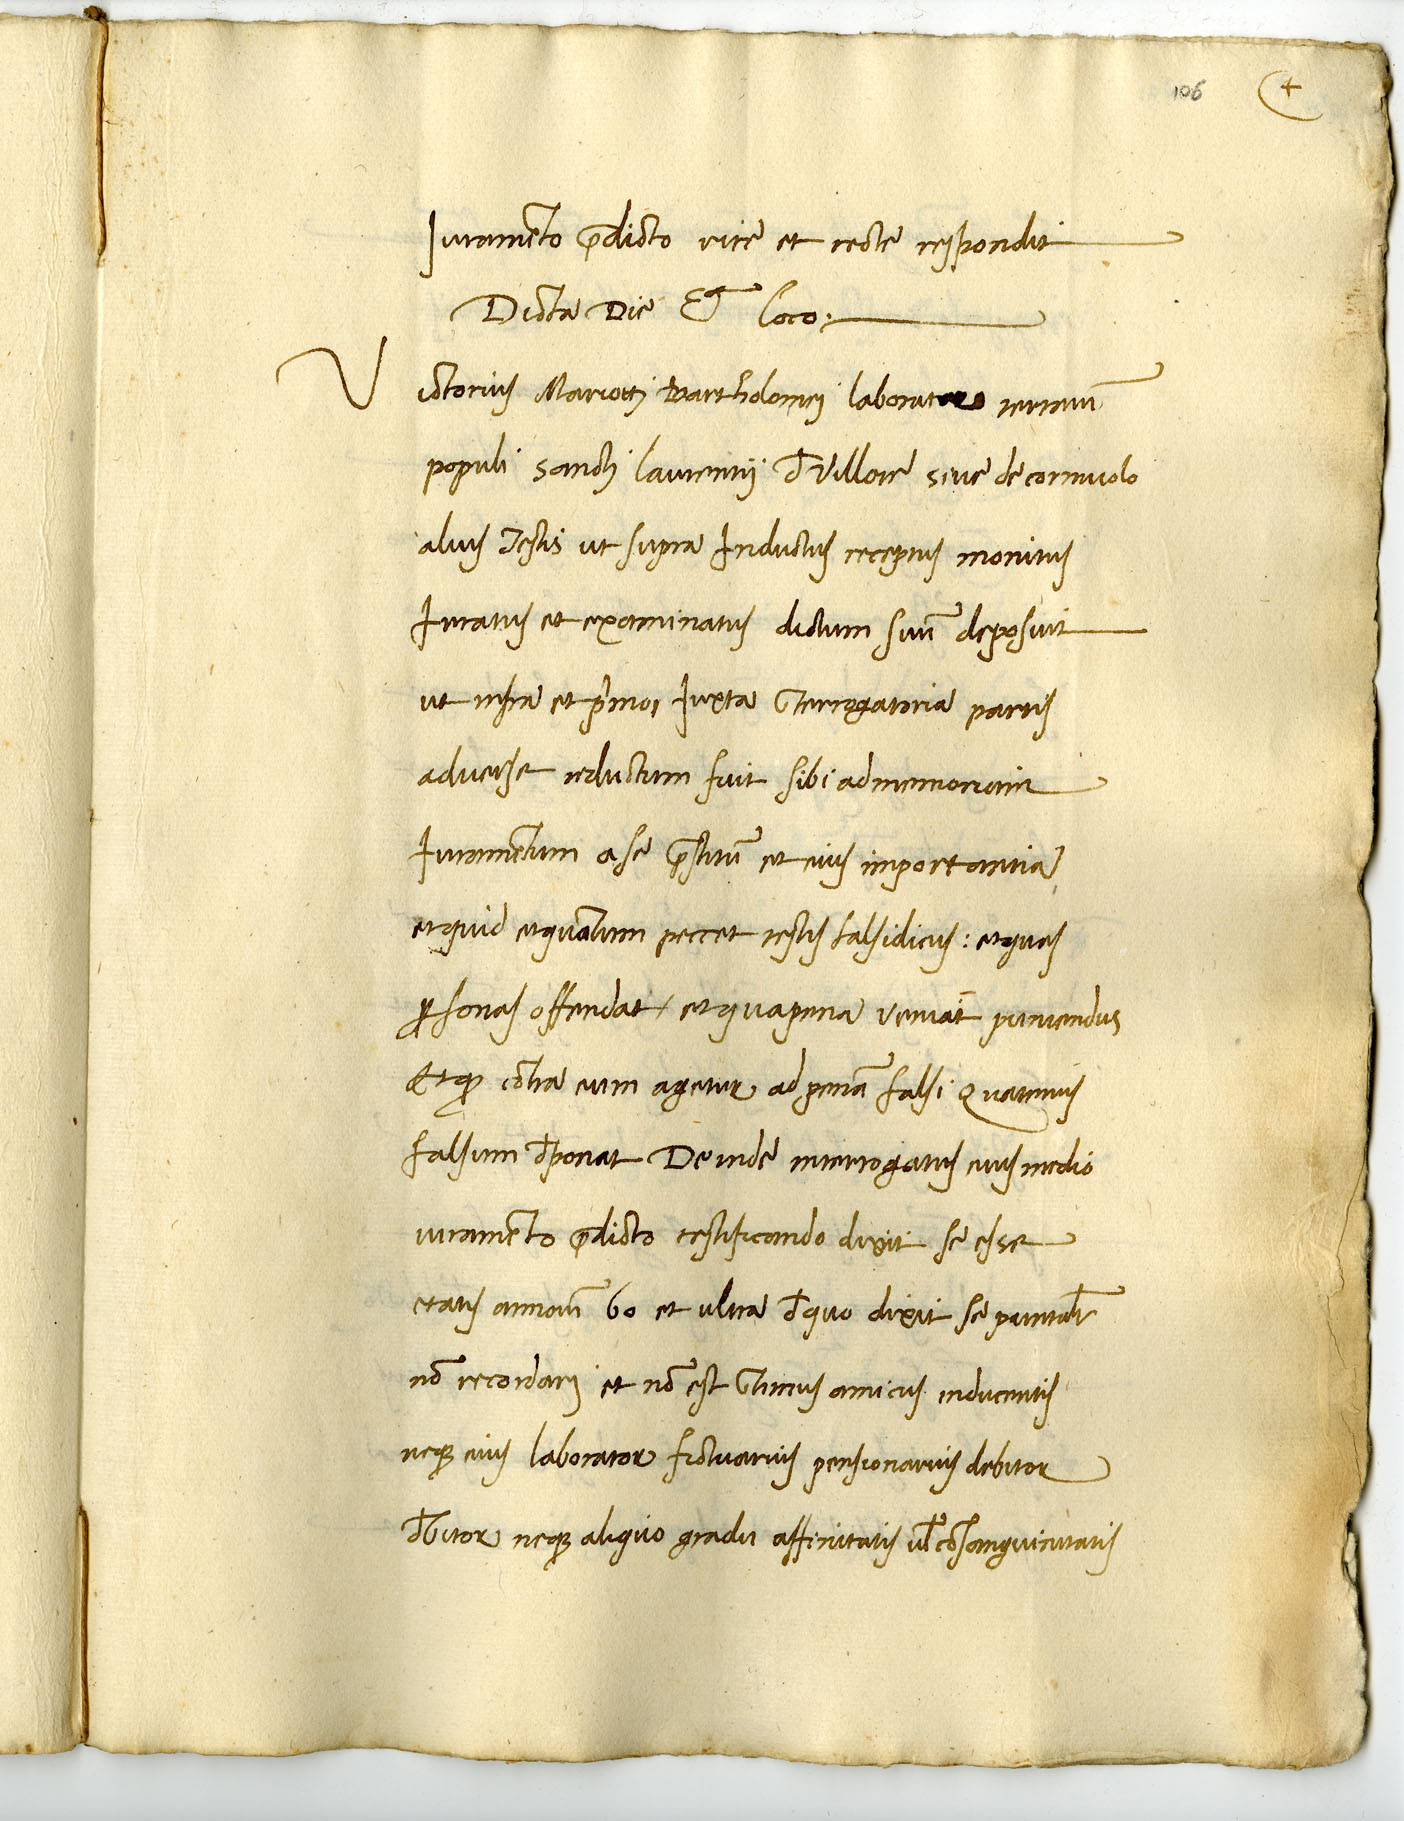 106 4
Iuramẽto p̃dicto rite et recte respondit
Dicta Die Et Loco:
Victorius Mariotti Bartholomej laborator terrarũ
populi sanctj laurentij d̃ Villore siue de cornuolo
alius Testis ut supra Inductus receptus monitus
Iuratus et examinatus dictum suũ deposuit
ut infra et p̃imo Iuxta Ĩterrogatoria partis
aduerse reductum fuit sibi ad memoriam
Iuramẽtum a se p̃stitũ et eius importantia
et quid et quãtum peccet testis falsidicus: et quas
ꝑsonas offendat / et qua pena ueniat puniendus
Et qꝫ cõtra eum agetur ad penã falsi Quatenus
falsum d̃ponat Deinde interrogatus eius medio
iuramẽto p̃dicto testificando dixit se esse
etatis annorũ 60 et ultra d̃ quo dixit se puntalr̃
nõ recordarj et nõ est Ĩtimus amicus inducentis
neqꝫ eius laborator fictuarius pensionarius debitor
d̃bitor neqꝫ aliquo gradu affinitatis ul̃ cõsanguinitatis